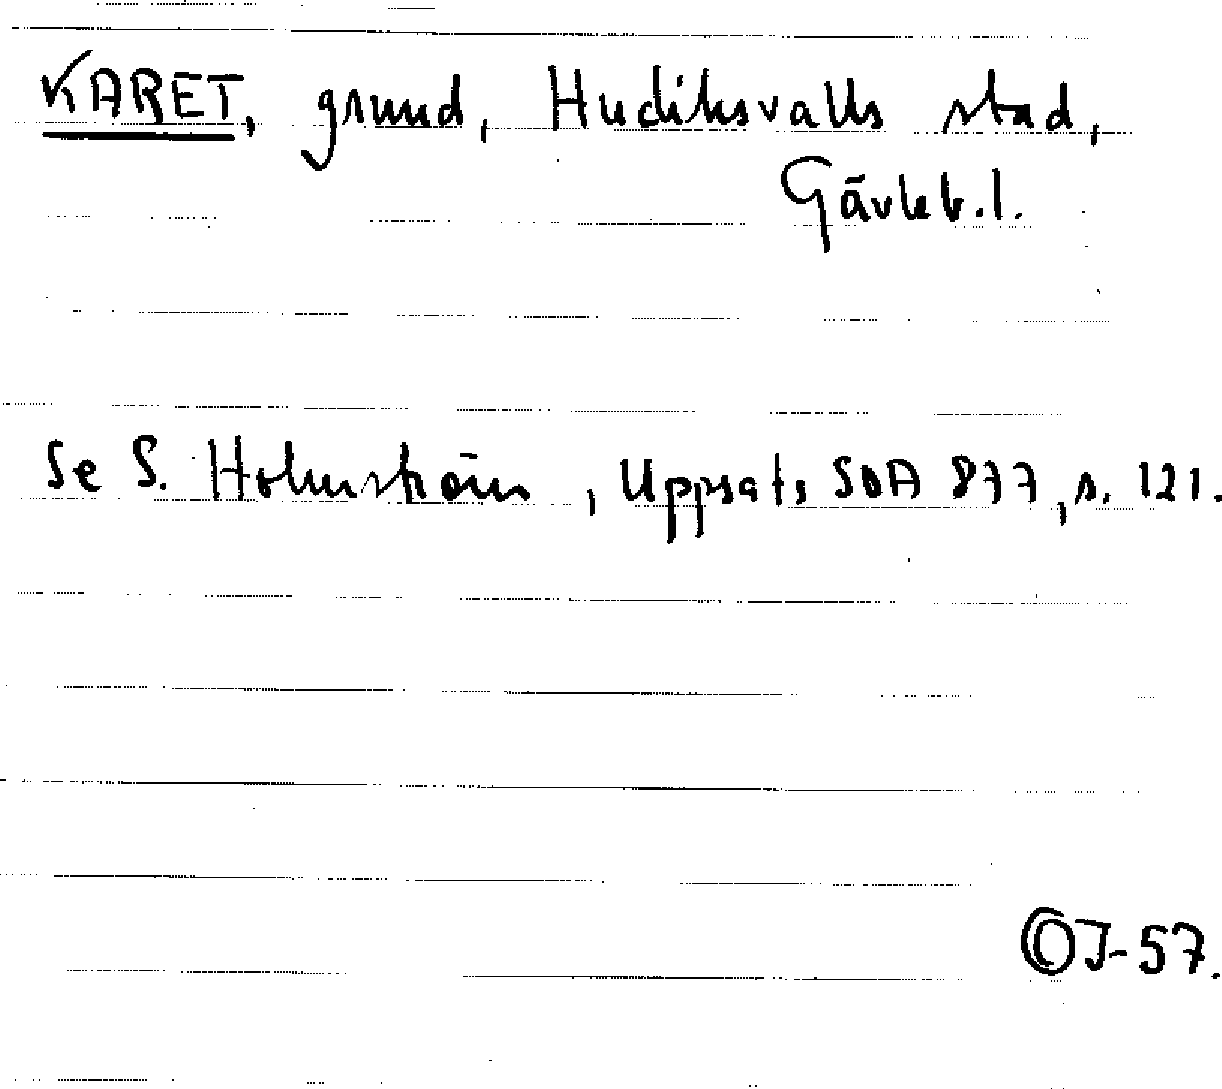 KARET, grund, Hudiksvalls stad,
Gävleb.l.
Se S. Holmström, Uppsats, SOA 877, s. 121.
OJ-57.